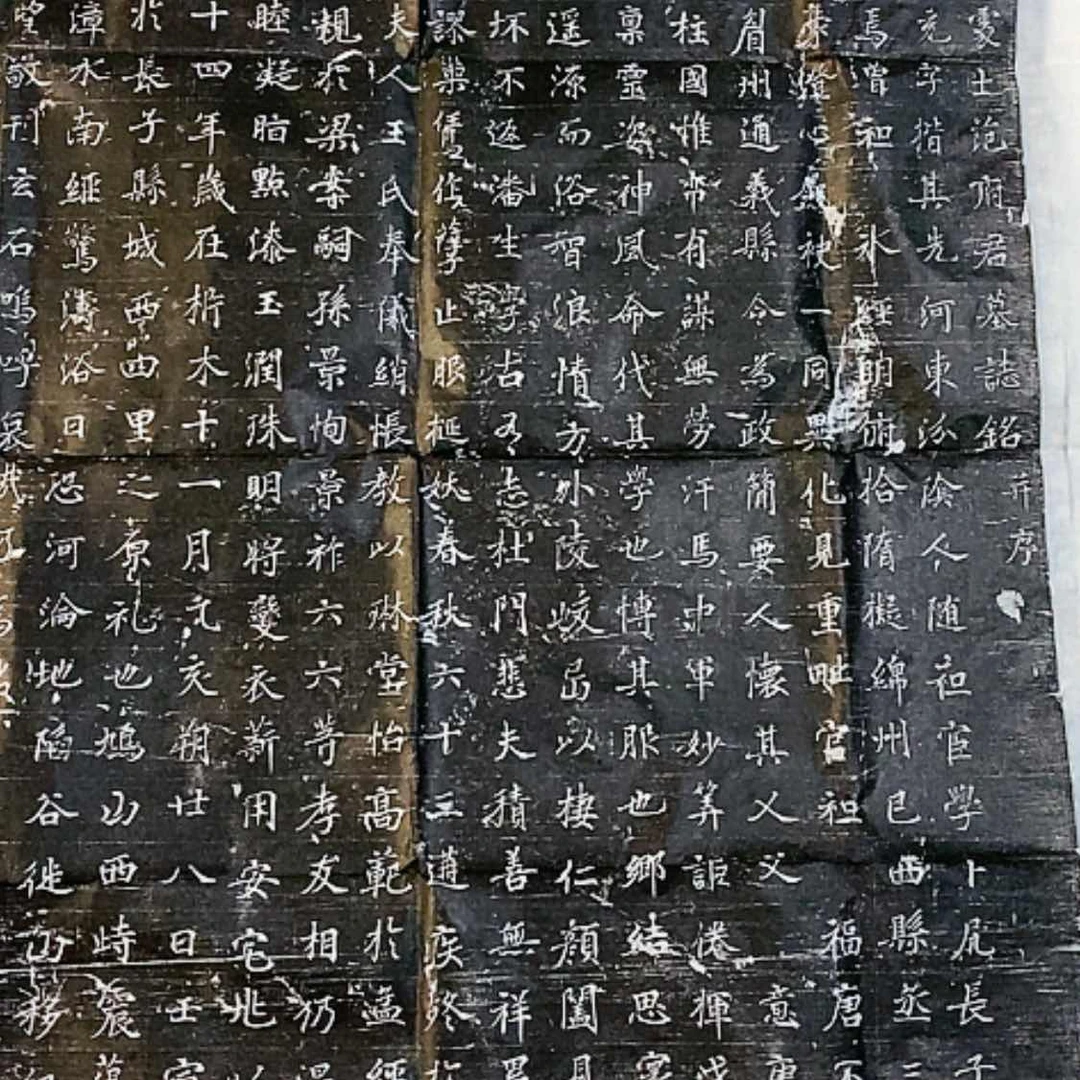 處士范府君墓誌銘并序
元字揩其先河東汾陰人随祖官學卜凥長子
焉曽祖永經明俯拾隋擬綿州巴西縣丞三
燈心無被一同興化見重毗官祖福唐不
眉州通義縣令為政簡要人懷其乂父意唐
柱國惟帝有謀無勞汗馬中軍妙筭詎倦揮戈
禀靈姿神風命代其學也愽其服也鄉結思
遥源而俗智浪情方外陵峧岳以棲仁顏闔
坏不返潘生學古有志杜門悲夫積善無祥
謬與止服樞妖春秋六十三遘疾終於
夫人王氏奉儀綃帳教以琳堂怡高範於孟經
親於梁案嗣孫景恂景祚六六等孝友相仍
睦凝暗點漆玉潤珠明將變衣薪用安宅兆以
十四年歲在析木十一月元亥朔廿八日壬寅
於長子縣城西西里之原礼也鳩山西峙震
漳水南經驚濤浴日恐河淪地陷谷徙山移
敬刊玄石嗚呼哀哉